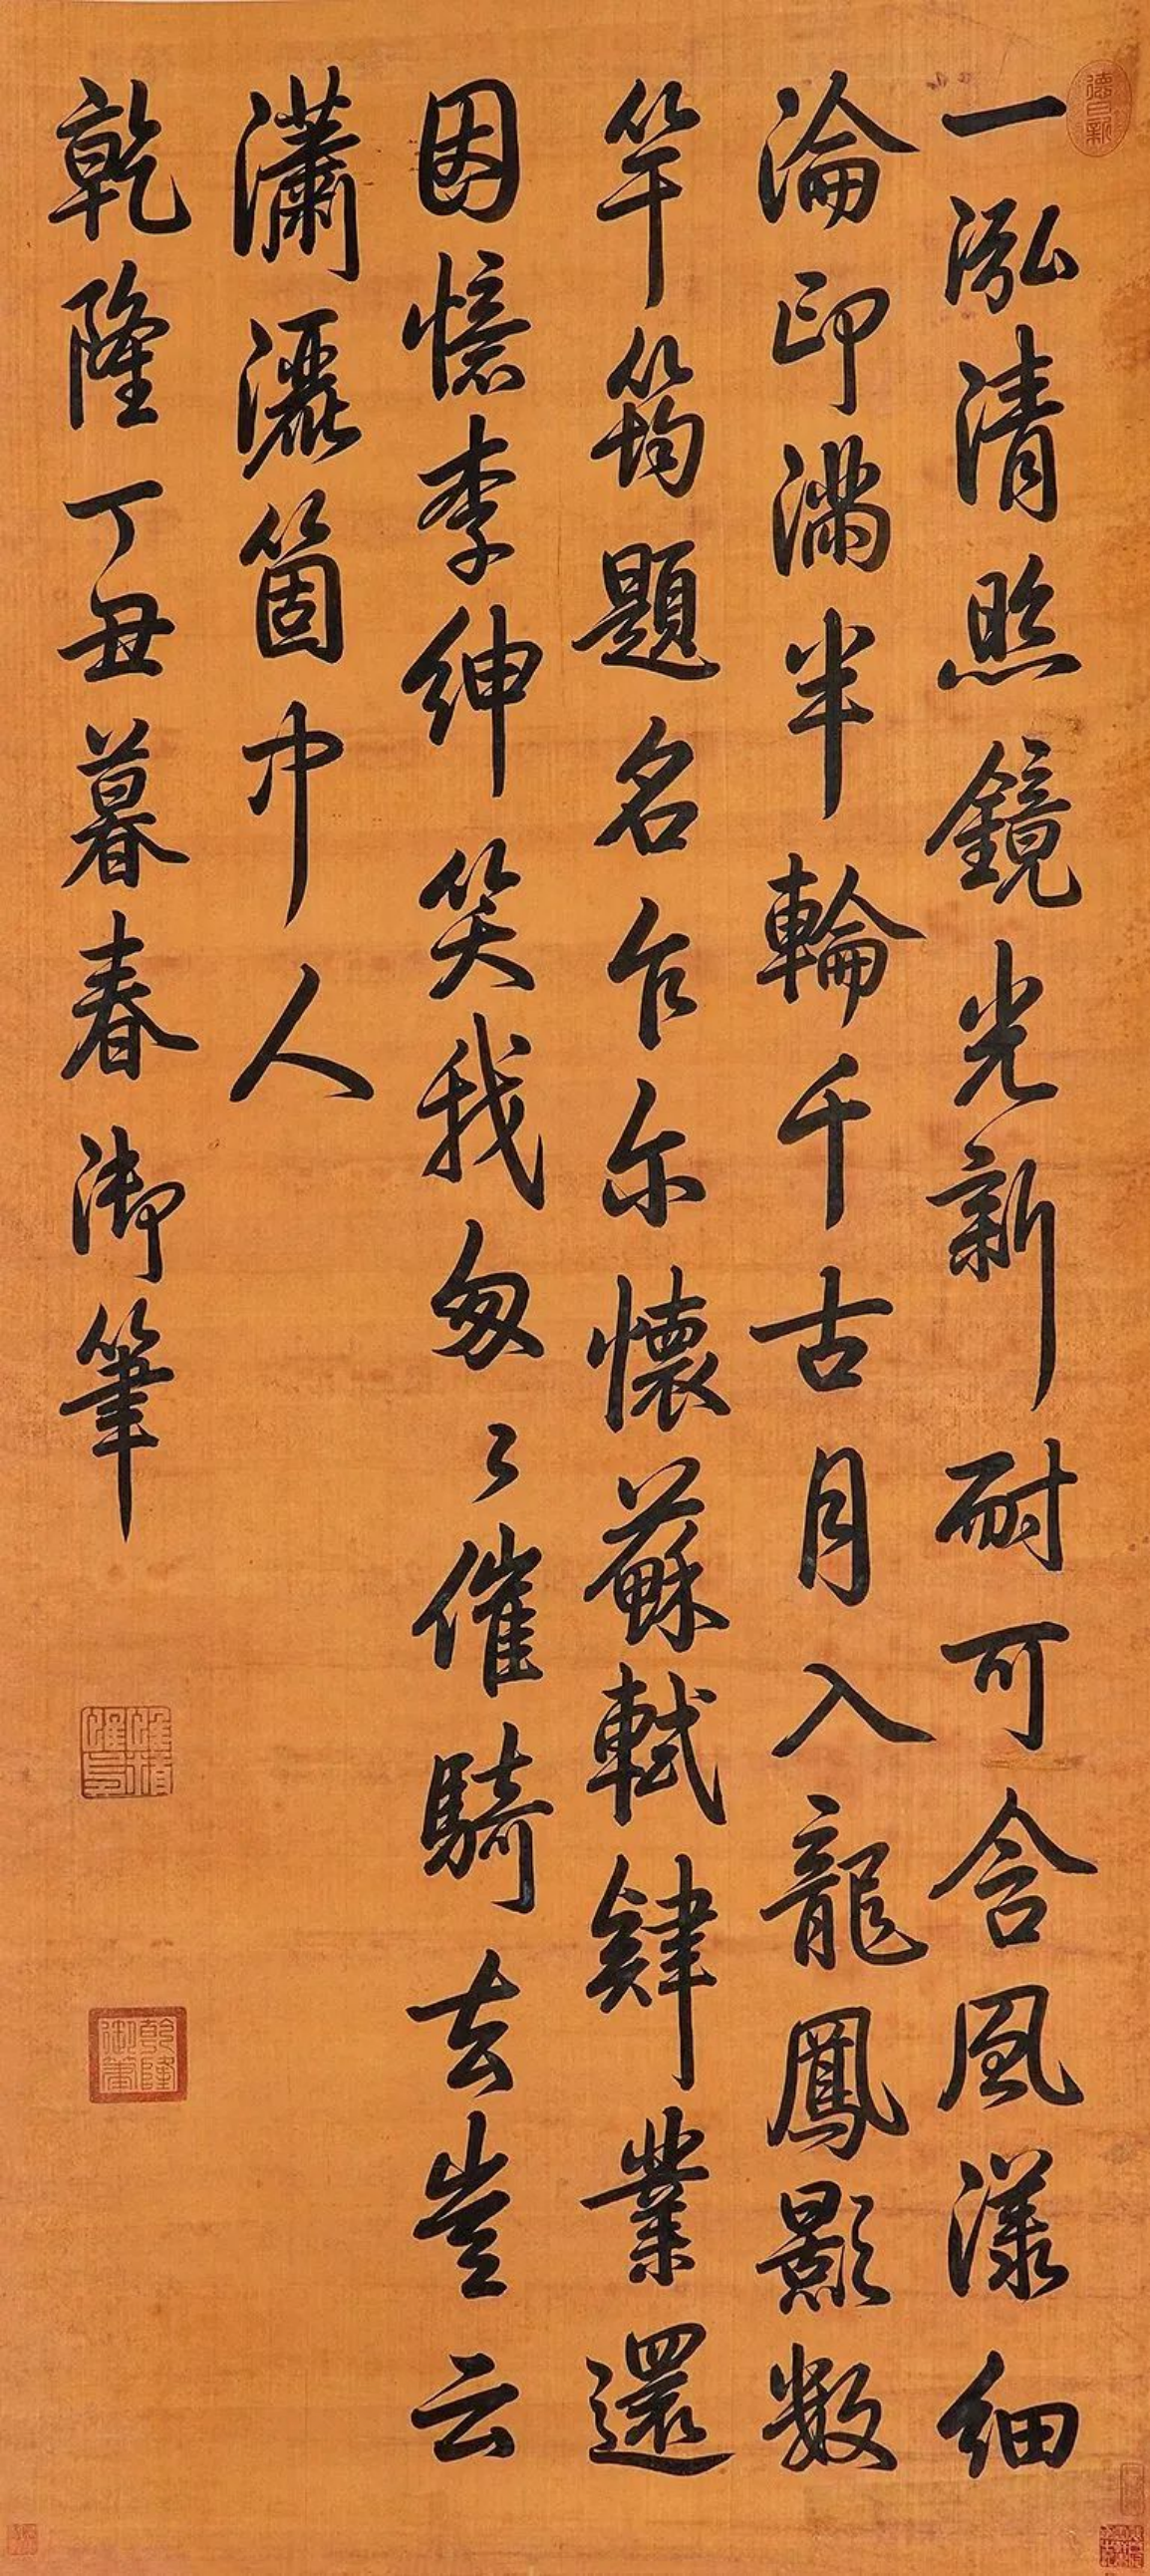 德日新
一泓清照鏡光新耐可含風漾細
淪印滿半輪千古月入龍鳳影數
竿筠題名乍尔懷蘇軾肄業還
因憶李紳笑我匆〻催騎去豈云
瀟灑箇中人
乾隆丁丑暮春御筆
乾隆御筆